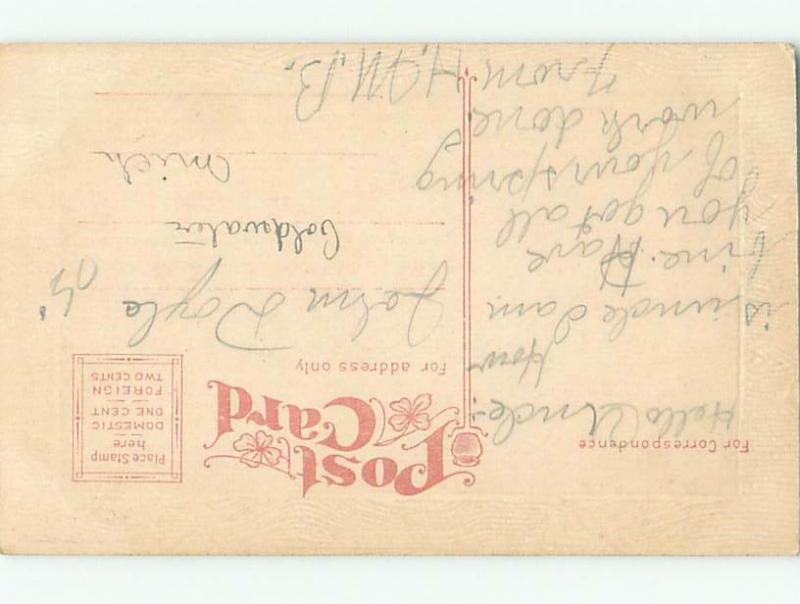 Post
Card
For Correspondence
For address only
Place Stamp
here
DOMESTIC
ONE CENT
FOREIGN
TWO CENTS
Hello Uncle:
How
is uncle Sam
fine. Have
you got all
of your spring
work done.
From H.M.B.
John Doyle
Coldwater
Mich